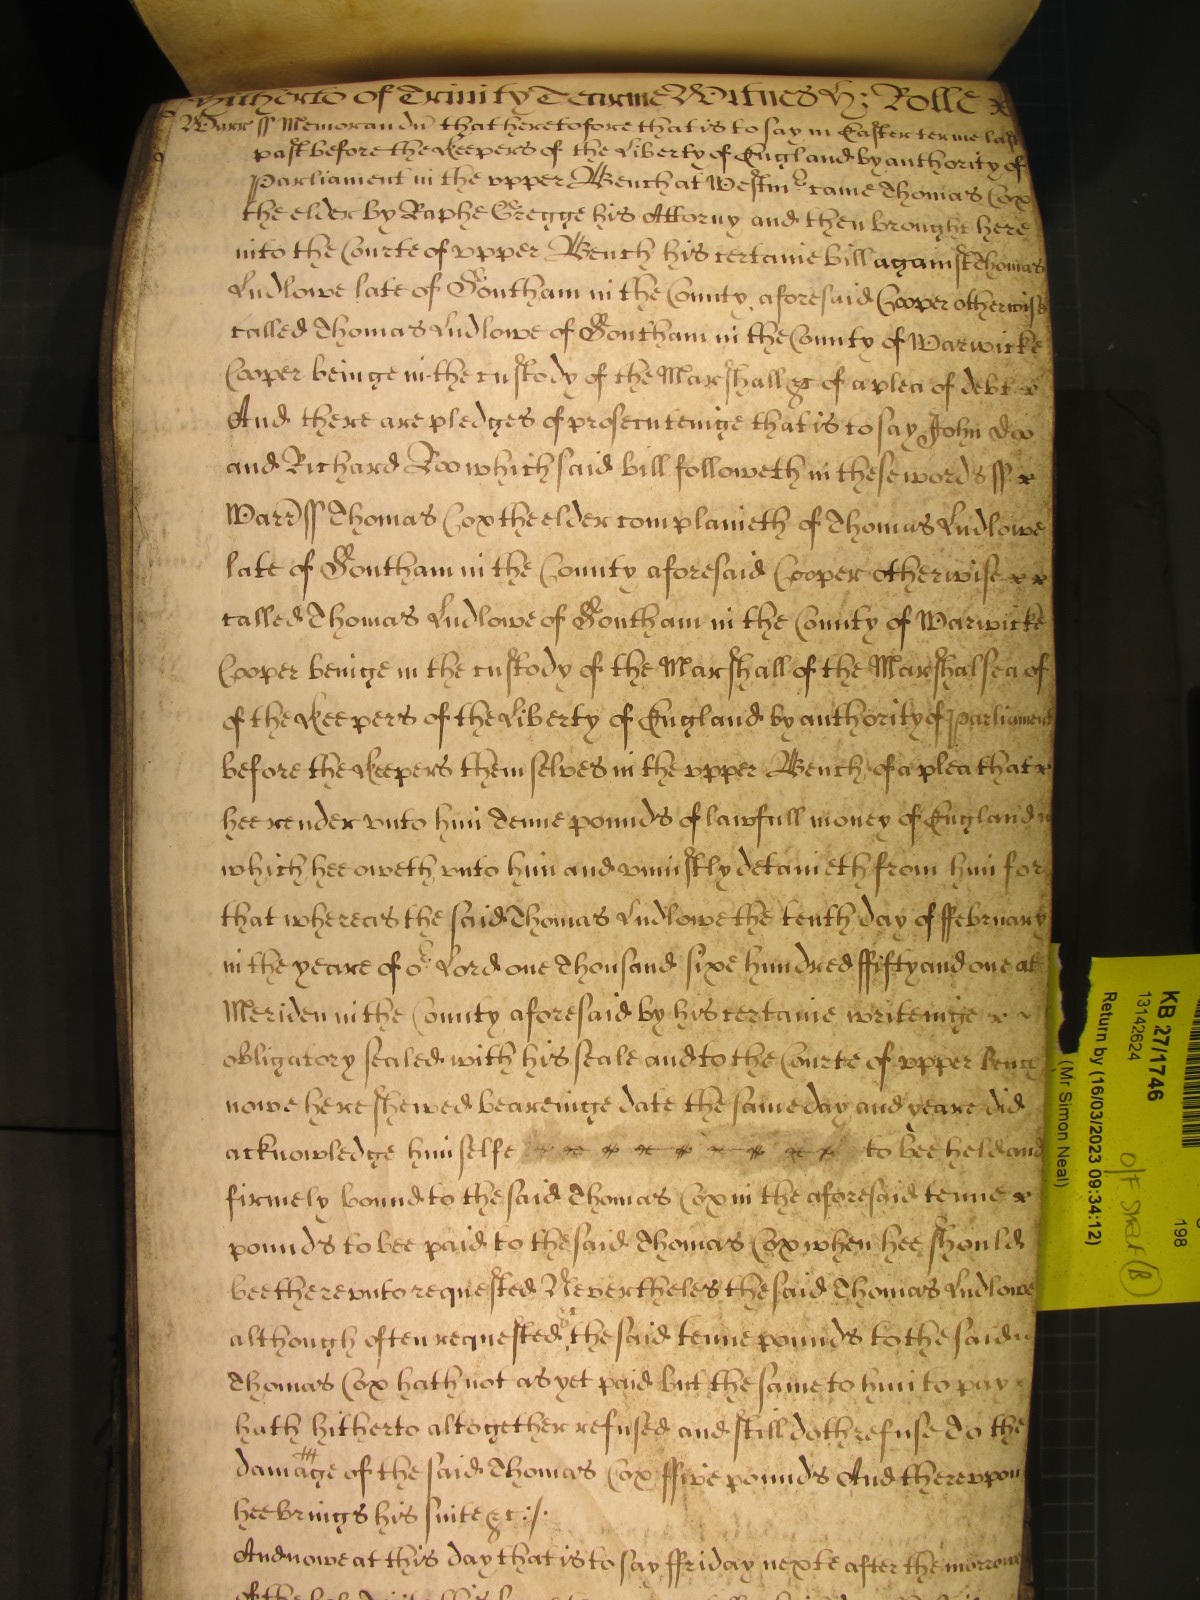 hitherto of Trinity Tearme Witnes H: Rolle
Warr ss Memorandu that heretofore that is to say in Easter terme last
past before the Keepers of the Liberty of England by authority of
Parliament in the upper Bench at Westmr came Thomas Cox
the elder by Raphe Gregge his Attorny and then brought here
into the Courte of upper Bench his certaine bill against Thomas
Ludlowe late of in the County aforesaid Cooper otherwise
called Thomas Ludlowe of in the County of Warwicke
Cooper beinge in the custody of the Marshall &c of a plea of debt
And there are pledges of prosecuteinge that is to say John Doo
and Richard Roo which said bill followeth in these words ss
Warr ss Thomas Cox the elder complaineth of Thomas Ludlowe
late of in the County aforesaid Cooper otherwise
called Thomas Ludlowe of in the County of Warwicke
Cooper beinge in the custody of the Marshall of the Marshalsea of
of the Keepers of the Liberty of England by authority of Parliament
before the Keepers themselves in the upper Bench of a plea that
hee render unto him Tenne pounds of lawfull money of England
which hee oweth unto him and uniustly detaineth from him for
that whereas the said Thomas Ludlowe the tenth day of ffebruary
in the yeare of or Lord one Thousand sixe hundred ffifty and one att
Meriden in the County aforesaid by his certaine writeinge
obligatory sealed with his seale and to the Courte of upper Bench
nowe here shewed beareinge date the same day and yeare did
acknowledge himselfe to bee held and
firmely bound to the said Thomas Cox in the aforesaid tenne
pounds to bee paid to the said Thomas Cox when hee should
bee thereunto requested Neverthelес the said Thomas Ludlowe
although often requested &c the said tenne pounds to the said
Thomas Cox hath not as yet paid but the same to him to pay
hath hitherto altogether refused and still doth refuse To the
damage of the said Thomas Cox ffive pounds And thereupon
hee brings his suite &c:/.
And nowe at this day that is to say ffriday nexte after the morrowe
KB 27/1746
13142624
Return by (16/03/2023 09:34:12)
(Mr Simon Neal)
198